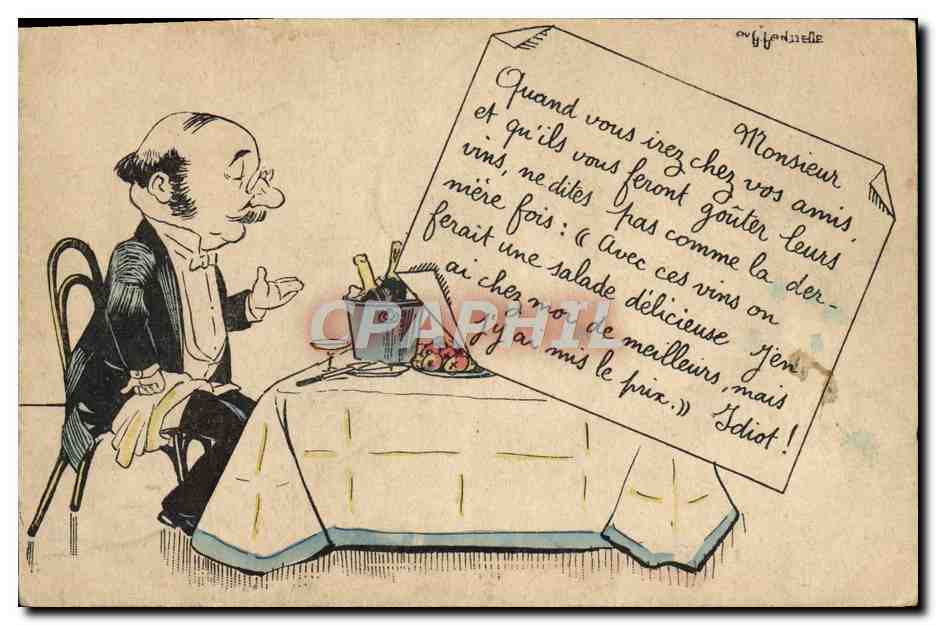 Monsieur
Quand vous irez chez vos amis,
et qu'ils vous feront goûter leurs
vins, ne dites pas comme la der-
nière fois : « Avec ces vins on
ferait une salade délicieuse J'en
ai chez moi de meilleurs, mais
j'y ai mis le prix. » Idiot !
CPAPHIL